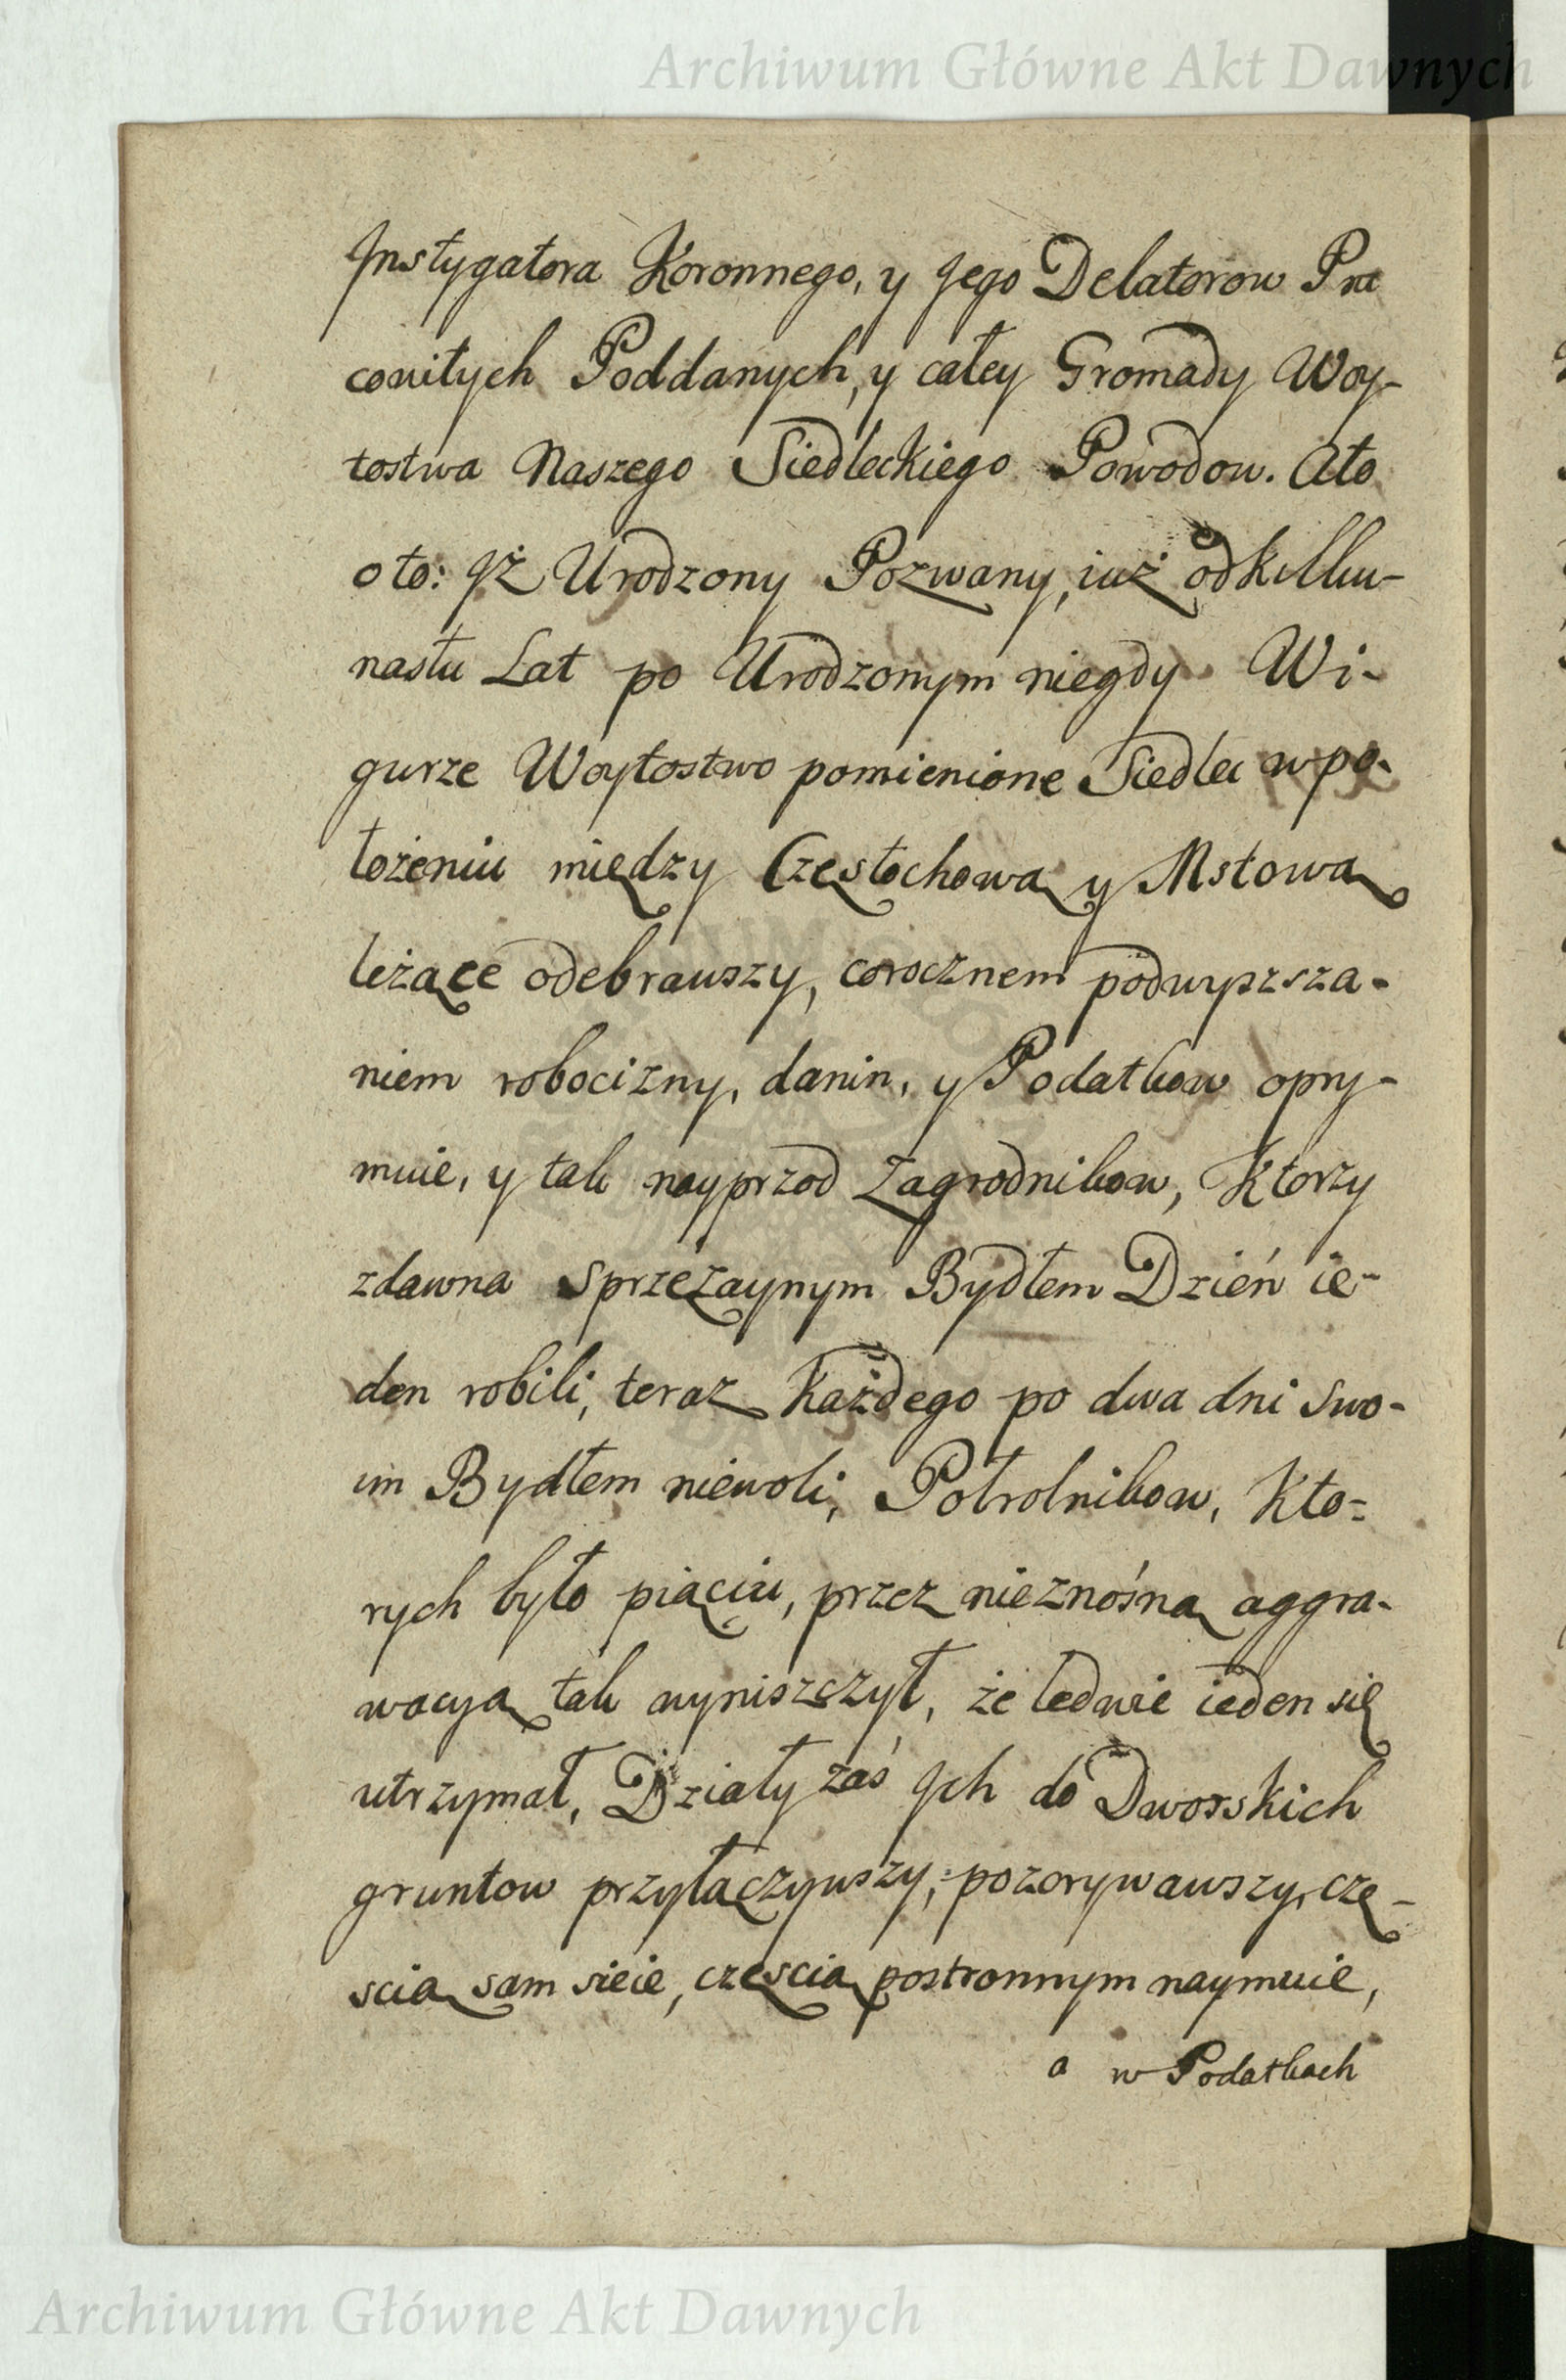 Archiwum Główne Akt Dawnych
Instygatora Koronnego, y Jego Delatorow Pra
cowitych Poddanych, y całey Gromady Woy-
tostwa Naszego Siedleckiego Powodow. Ato
oto: Iż Urodzony Pozwany, iuż od kilku-
nastu Lat po Urodzonym niegdy Wi-
gurze Woytostwo pomienione Siedlec w po-
łożeniu między Częstochową y Mstową
leżące odebrawszy, corocznem podwyższa-
niem robocizny, danin, y Podatkow opry-
muie, y tak nayprzod Zagrodnikow, Ktorzy
zdawna sprzężaynym Bydłem Dzień ie-
den robili, teraz Każdego po dwa dni swo-
im Bydłem niewoli, Połrolnikow, Kto-
rych było piąciu, przez nieznośną aggra-
wacyą tak wyniszczył, że ledwie ieden się
utrzymał, Działy zaś Ich do Dworskich
gruntow przyłączywszy, pozorywawszy, czę-
scią sam sieie, częscią postronnym naymuie,
a w Podatkach
Archiwum Główne Akt Dawnych